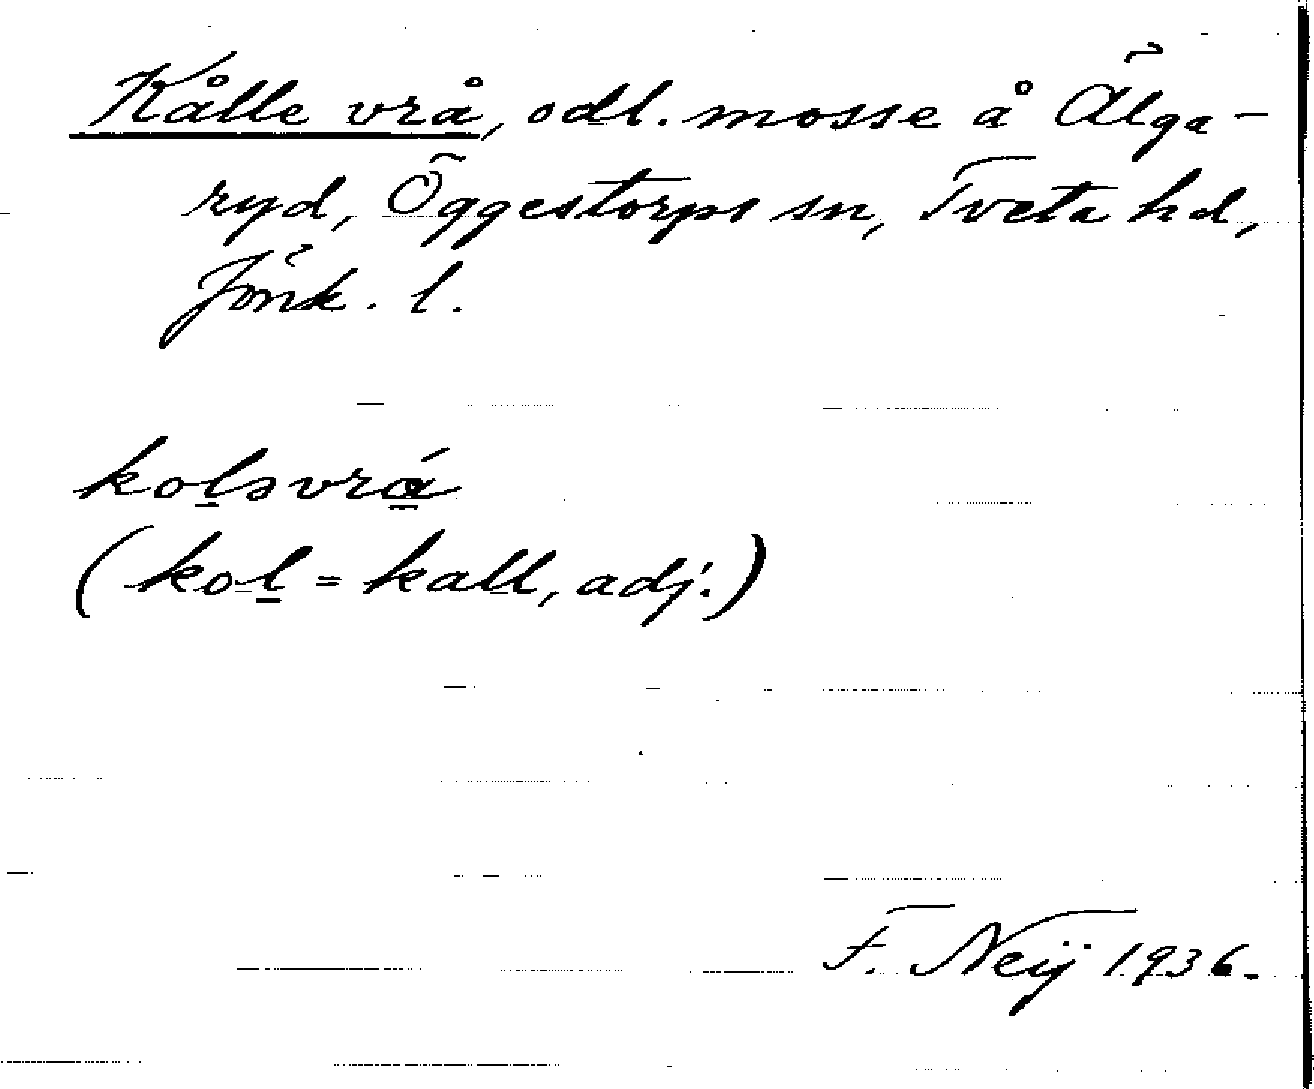 Kålle vrå, odl. mosse å Älga-
ryd, Öggestorps sn, Tveta hd,
Jönk. l.
kolsvrá
(kol = kall, adj.)
F. Neij 1936.